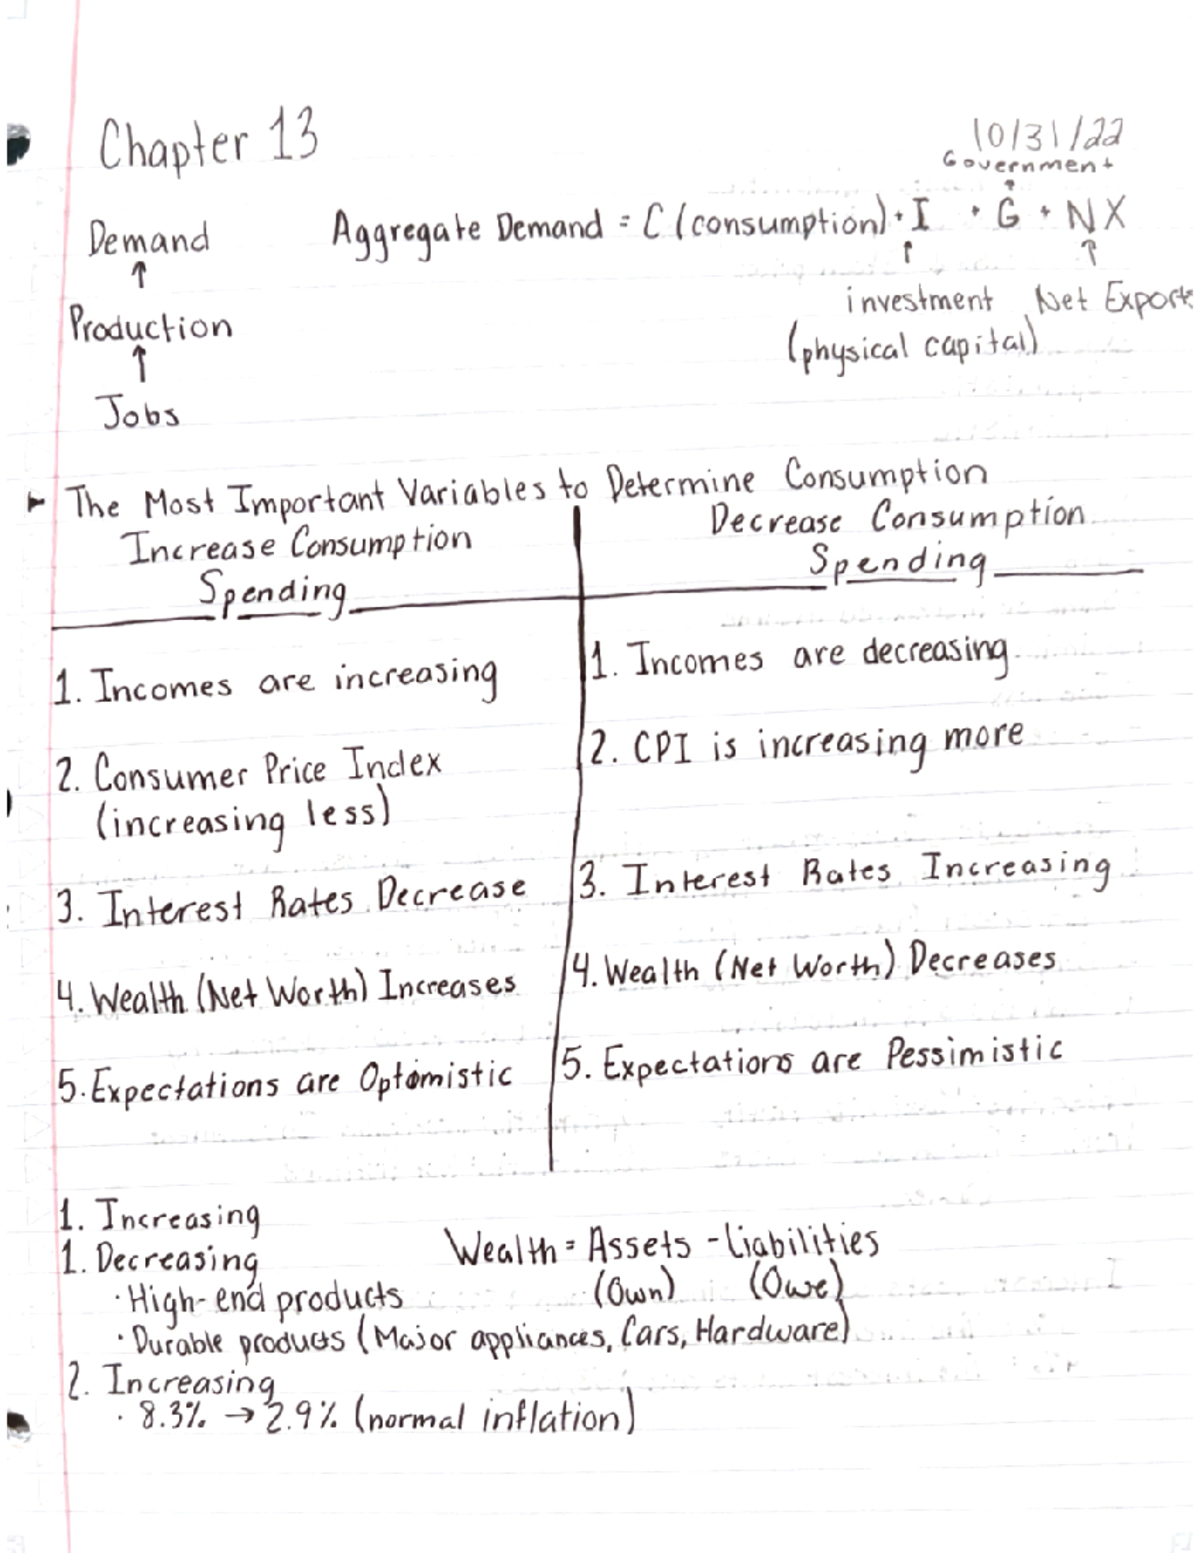 Chapter 13
10/31/22
Government
↑
Demand
Aggregate Demand = C (consumption) + I + G + NX
↑
↑ ↑
investment Net Exports
Production
(physical capital)
↑
Jobs
► The Most Important Variables to Determine Consumption
Increase Consumption
Spending
Decrease Consumption
Spending
1. Incomes are increasing
1. Incomes are decreasing
2. Consumer Price Index
(increasing less)
2. CPI is increasing more
3. Interest Rates Decrease
3. Interest Rates Increasing
4. Wealth (Net Worth) Increases
4. Wealth (Net Worth) Decreases
5. Expectations are Optomistic
5. Expectations are Pessimistic
1. Increasing
1. Decreasing
Wealth = Assets - Liabilities
(Own) (Owe)
· High-end products
· Durable products (Major appliances, Cars, Hardware)
2. Increasing
· 8.3% → 2.9% (normal inflation)